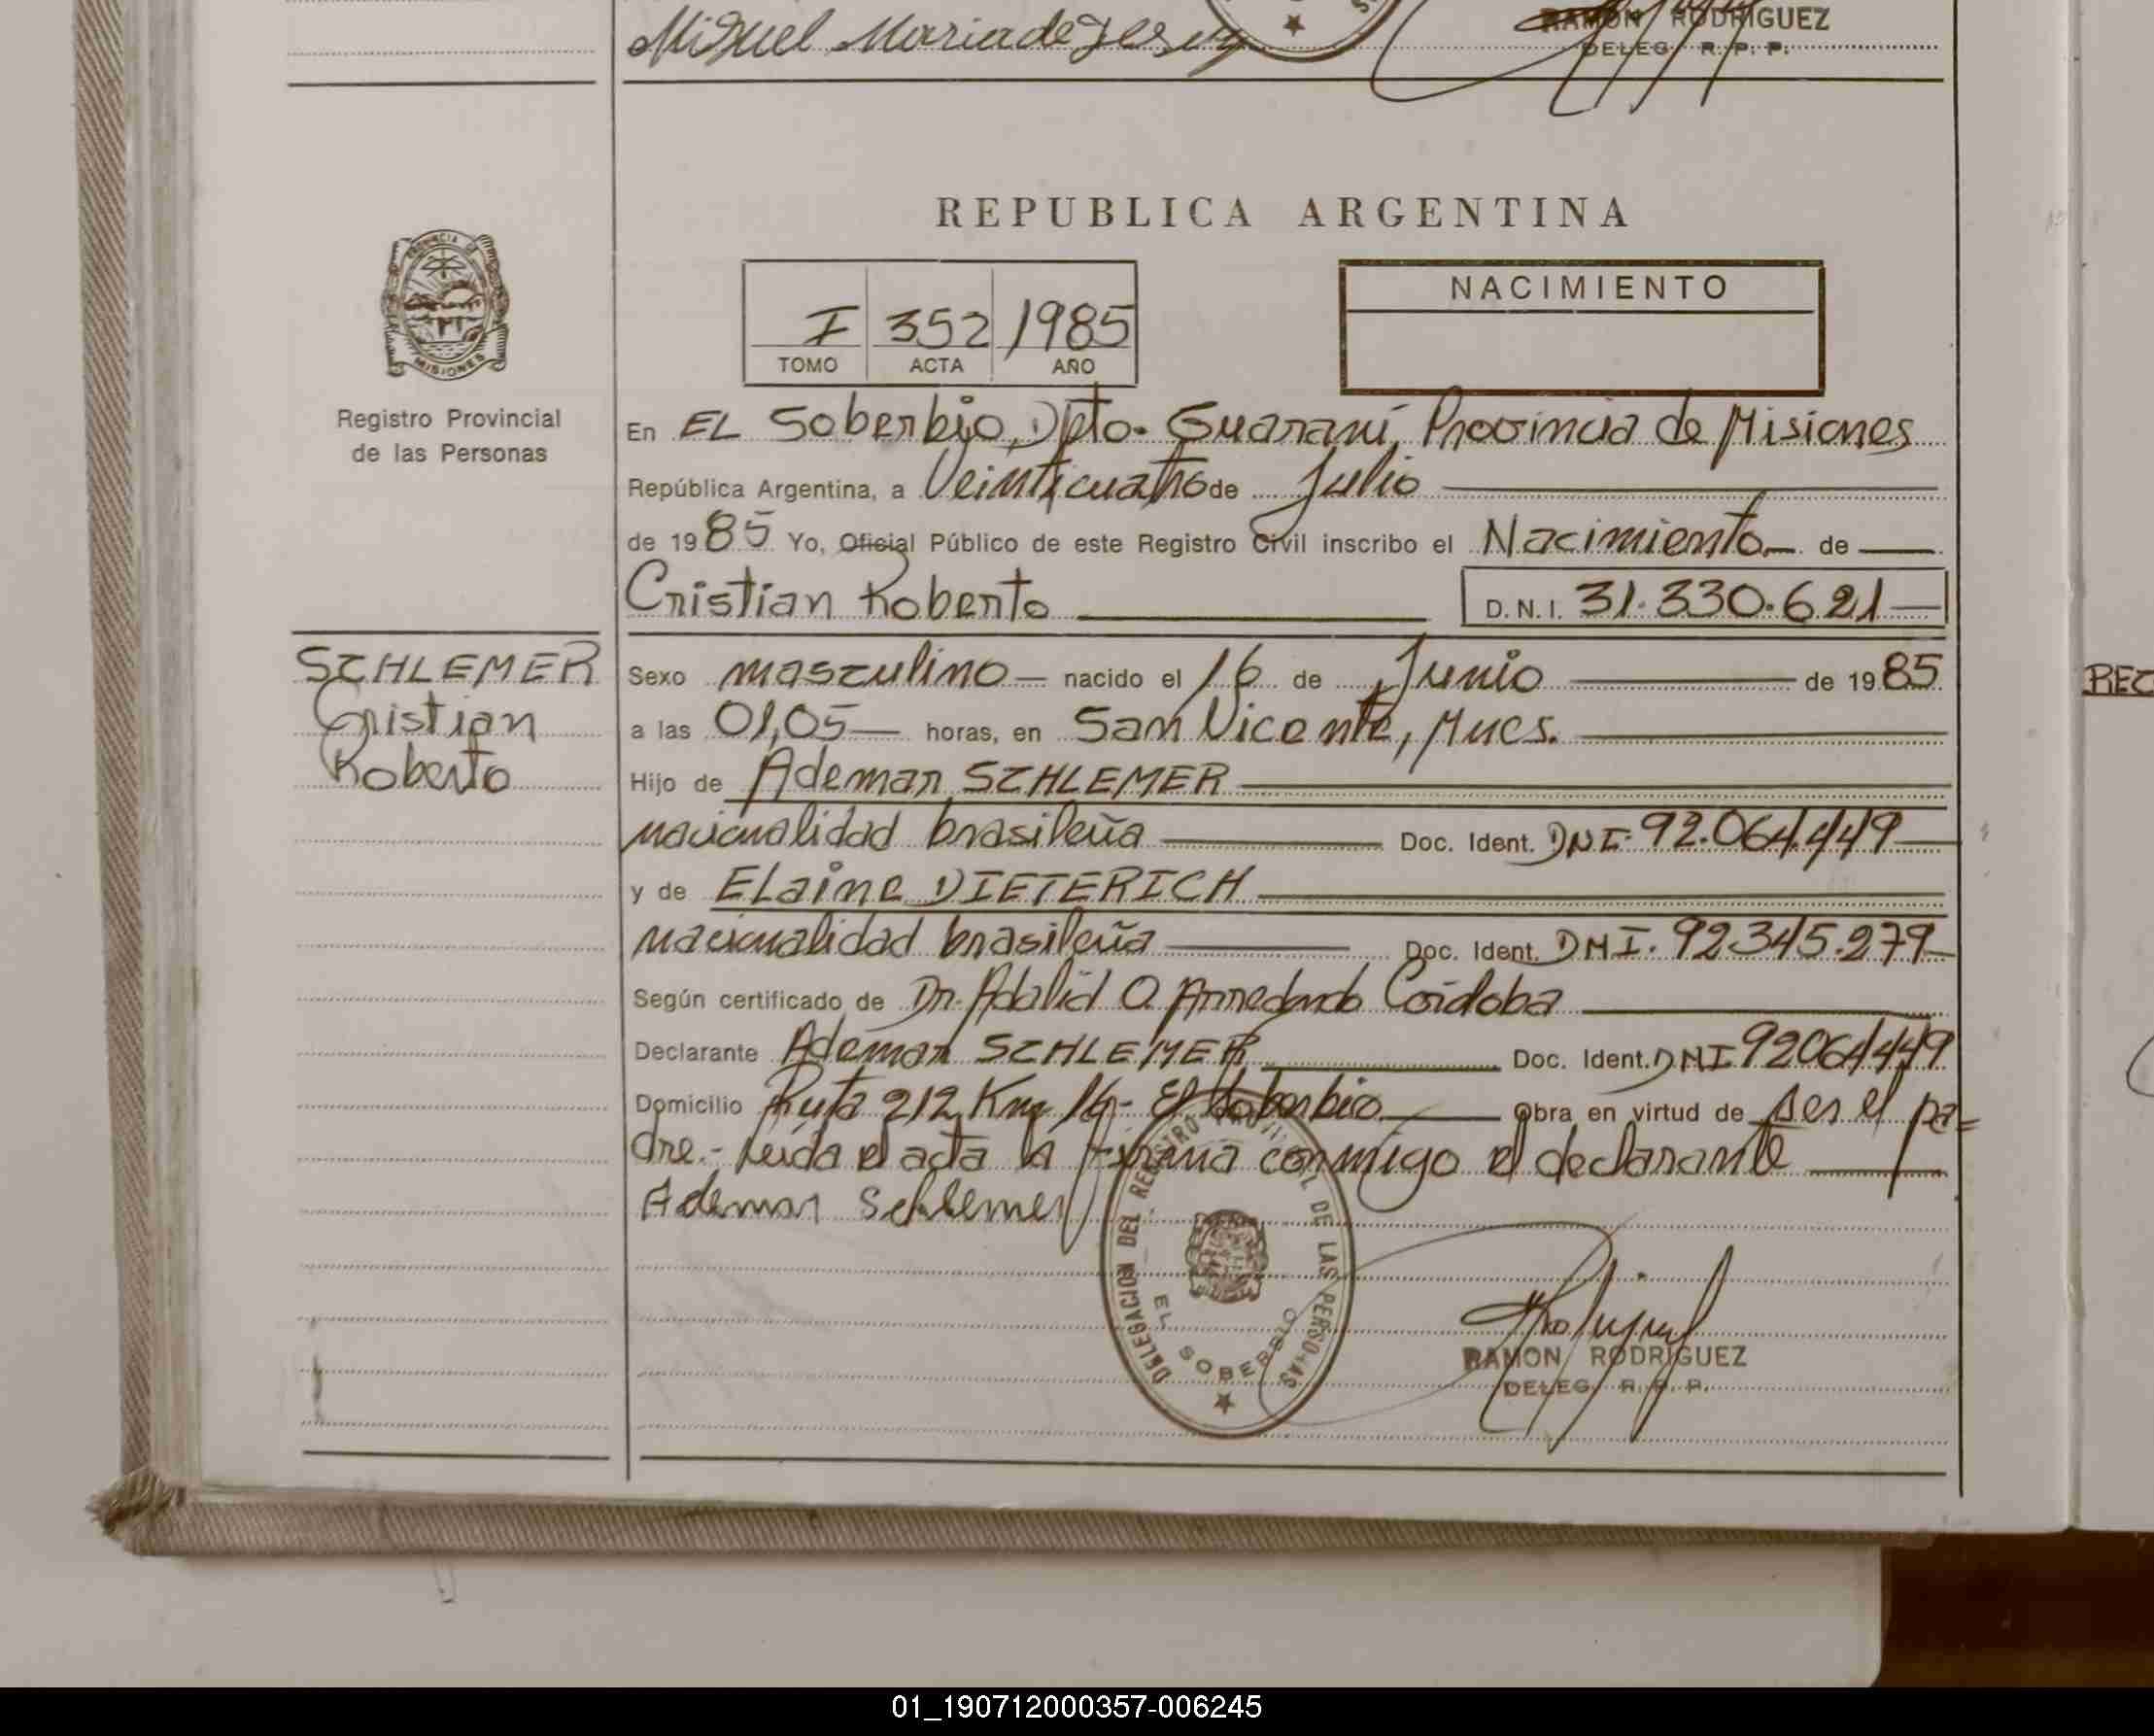 Miguel Maria de Jesus
RAMON RODRIGUEZ
DELEG. R. P. P.
REPUBLICA ARGENTINA
NACIMIENTO
I 352 1985
TOMO ACTA AÑO
PROVINCIA DE
MISIONES
Registro Provincial
de las Personas
En EL Soberbio, Dpto. Guaraní, Provincia de Misiones
República Argentina, a Veinticuatro de Julio
de 1985 Yo, Oficial Público de este Registro Civil inscribo el Nacimiento de
Cristian Roberto D.N.I. 31.330.621
SCHLEMER
Cristian
Roberto
Sexo masculino nacido el 16 de Junio de 1985
a las 01,05 horas, en San Vicente, Mnes.
Hijo de Ademar SCHLEMER
nacionalidad brasileña Doc. Ident. DNI. 92.064.449
y de ELaine DIETERICH
nacionalidad brasileña Doc. Ident. DNI. 92.345.279
Según certificado de Dr. Adalid O. Arredondo Córdoba
Declarante Ademar SCHLEMER Doc. Ident. DNI 92064449
Domicilio Ruta 212 Km 16- El Soberbio Obra en virtud de ser el pa=
dre.- Leída el acta la firma conmigo el declarante
Ademar Schlemer
DELEGACION DEL REGISTRO PROVINCIAL DE LAS PERSONAS
EL SOBERBIO
RAMON RODRIGUEZ
DELEG. R. P. P.
REC
01_190712000357-006245